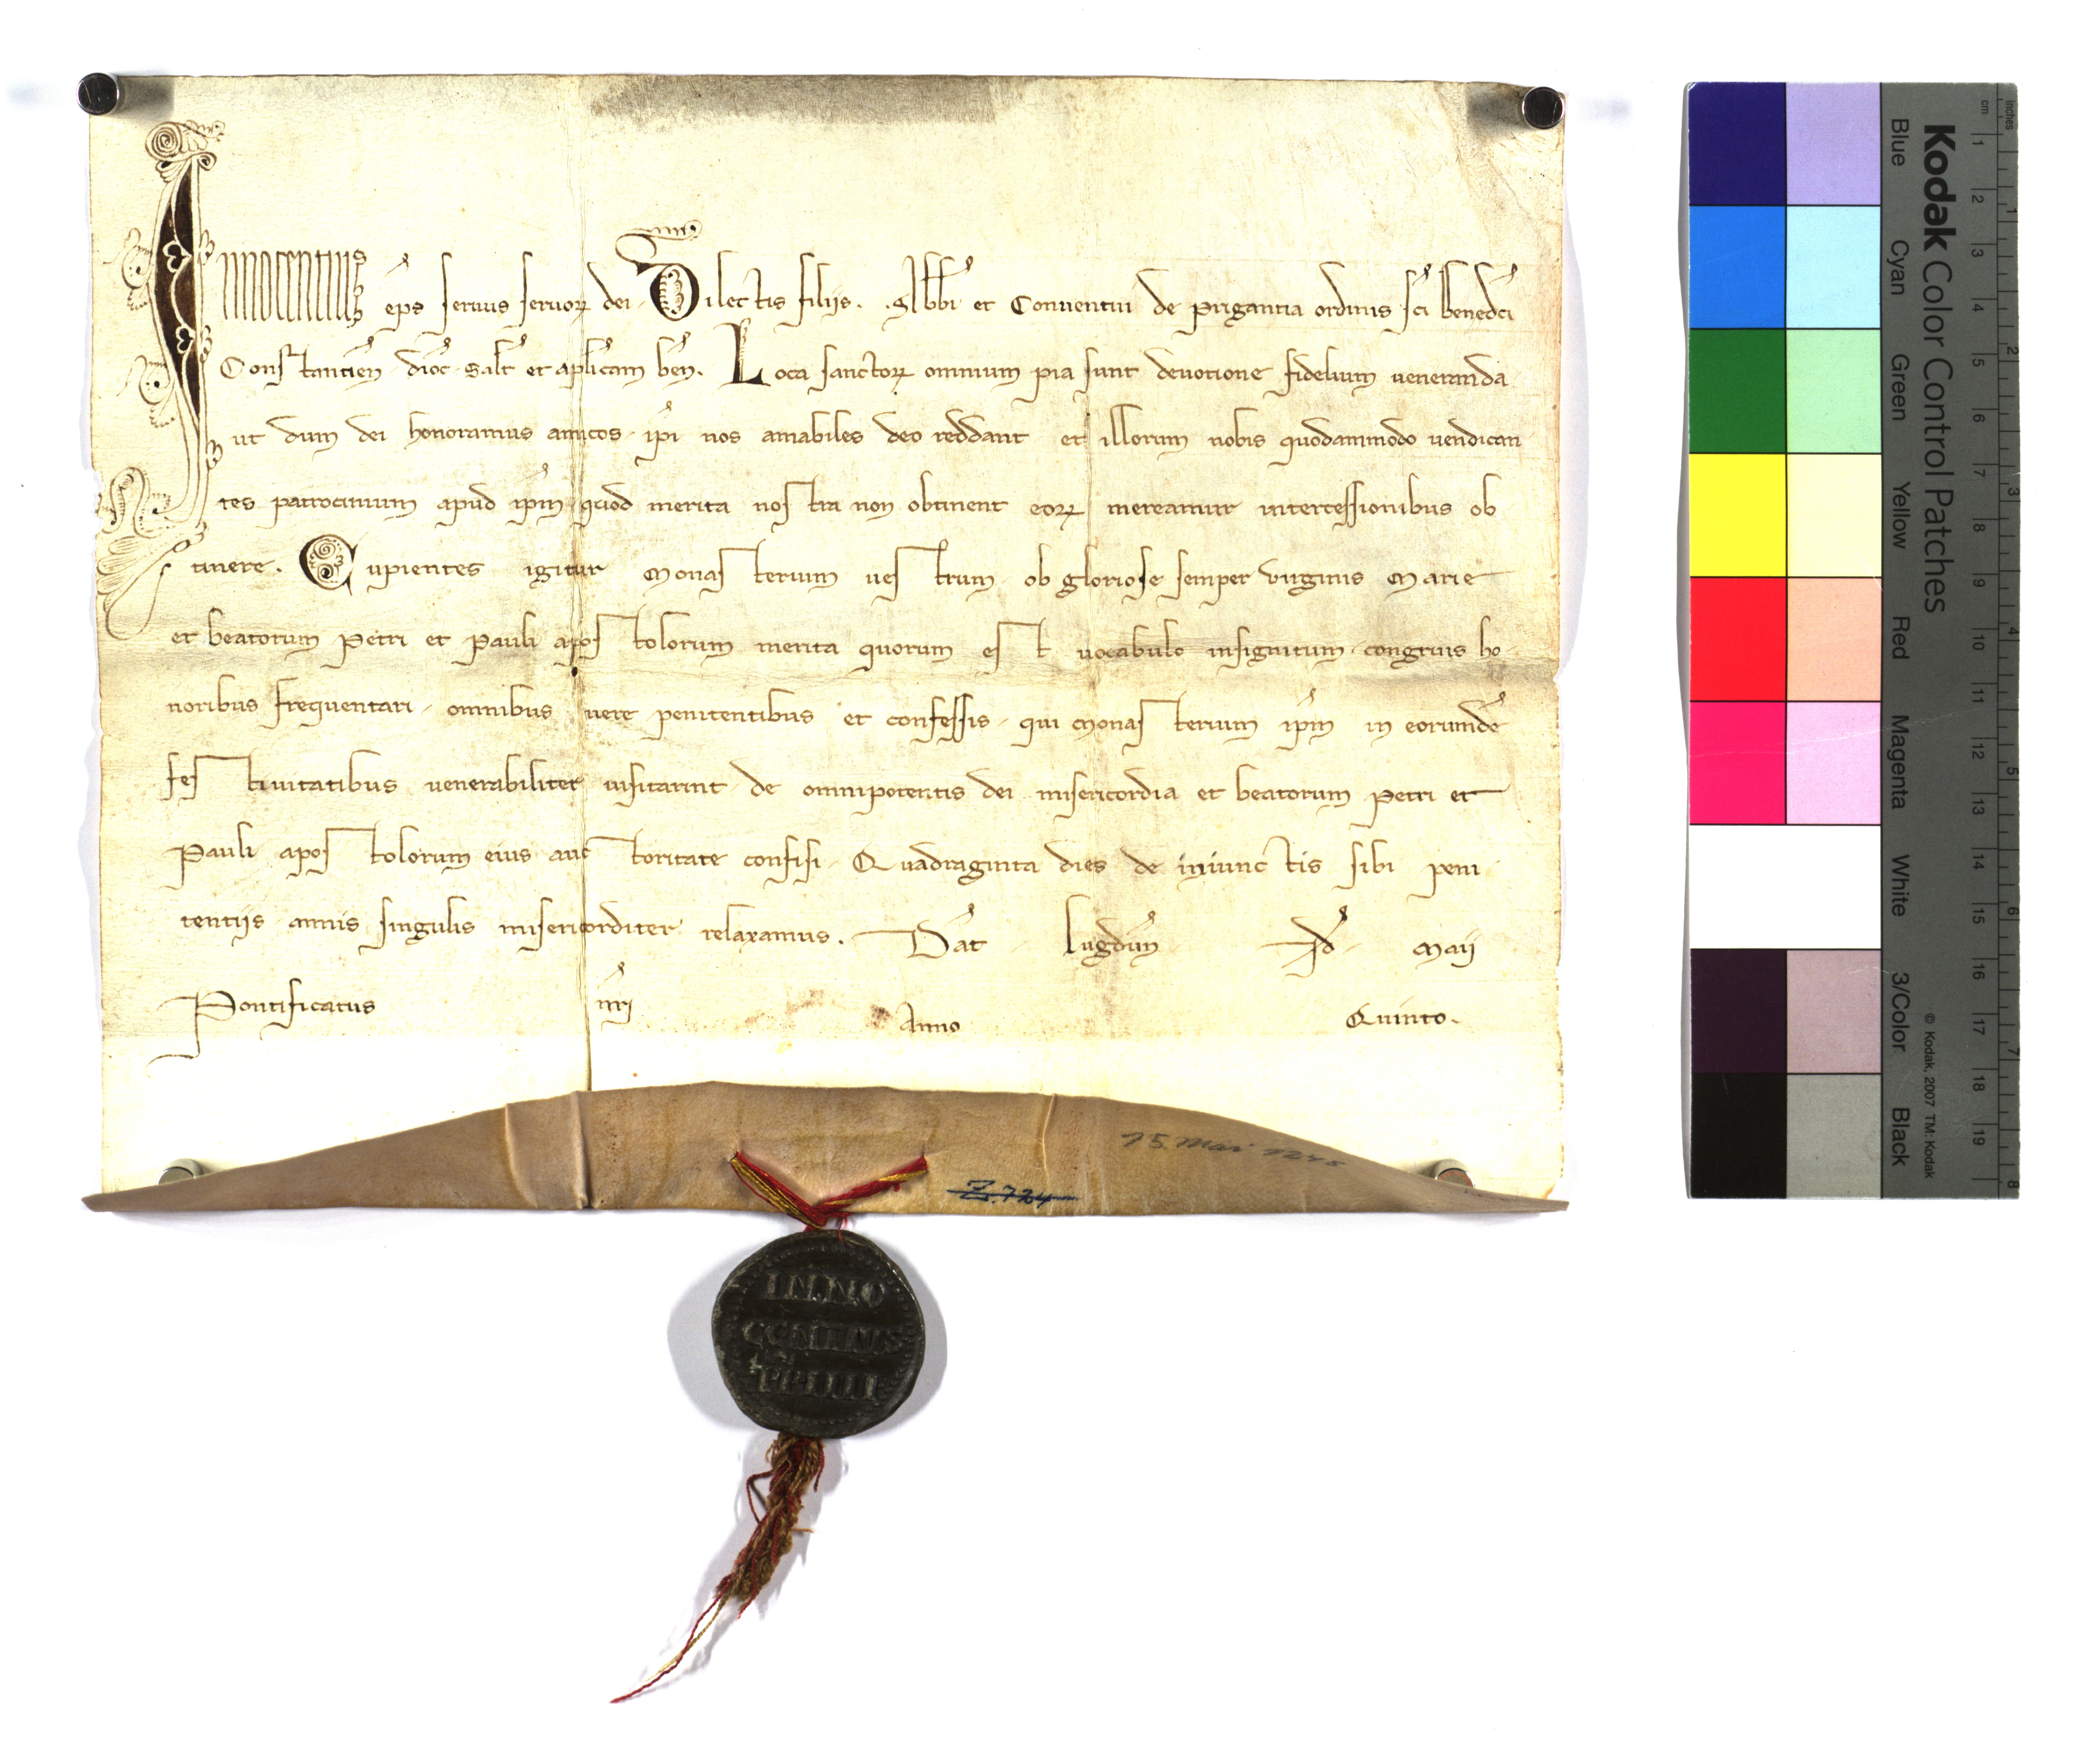 Innocentius ep̄s seruus seruoꝝ dei. Dilectis filijs.. Abb̄i et Conuentui de Prigantia ordinis sc̄i Bened̄ci
Constantien̄ dioc̄ salt̄ et ap̄licam ben̄. Loca sanctoꝝ omnium pia sunt deuotione fidelium ueneranda
ut dum dei honoramus amicos ip̄i nos amabiles deo reddant et illorum nobis quodammodo uendican
tes patrocinium apud ip̄m quod merita nostra non obtinent eoꝝ mereamur intercessionibus ob
tinere. Cupientes igitur Monasterium uestrum ob gloriose semper uirginis Marie
et beatorum Petri et Pauli apostolorum merita quorum est uocabulo insignitum congruis ho
noribus frequentari omnibus uere penitentibus et confessis qui Monasterium ip̄m in eorumdē
festiuitatibus uenerabiliter uisitarint de omnipotentis dei misericordia et beatorum Petri et
Pauli apostolorum eius auctoritate confisi. Quadraginta dies de iniunctis sibi peni
tentijs annis singulis misericorditer relaxamus. Dat̄ Lugdun̄ Id̄ Maij
Pontificatus nr̄i Anno Quinto.
15. Mai 1248
Z. 724
INNO
CENTIUS
PP IIII
Kodak Color Control Patches
Blue Cyan Green Yellow Red Magenta White 3/Color Black
© Kodak, 2007 TM: Kodak
cm 1 2 3 4 5 6 7 8 9 10 11 12 13 14 15 16 17 18 19
inches 1 2 3 4 5 6 7 8